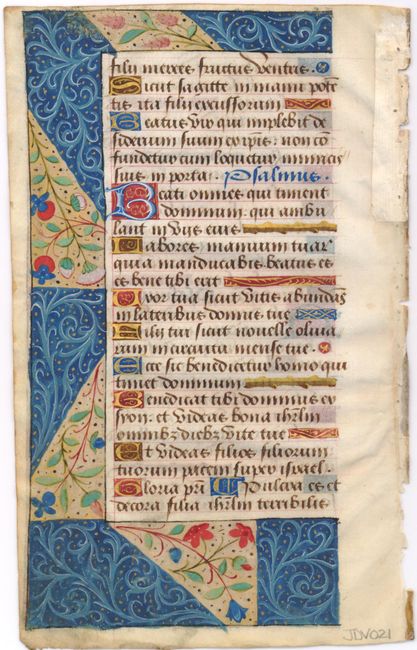 filii merces fructus ventris.
Sicut sagitte in manu potē
tis ita filii excussorum
Beatus vir qui implebit de
siderium suum ex ipsis: non cō
fundetur cum loquetur inimicis
suis in porta. Psalmus.
Beati omnes qui timent
dominum. qui ambu
lant in viis eius
Labores manuum tuar
quia manducabis beatus es
et bene tibi erit
Uxor tua sicut vitis abundās
in lateribus domus tue
Filii tui sicut novelle oliva
rum in circuitu mense tue
Ecce sic benedicetur homo qui
timet dominum
Benedicat tibi dominus ex
syon. et videas bona ihrlm
omnibz diebz vite tue
Et videas filios filiorum
tuorum pacem super israel.
Gloria pri Pulcra es et
decora filia ihrlm terribilis
JDV021